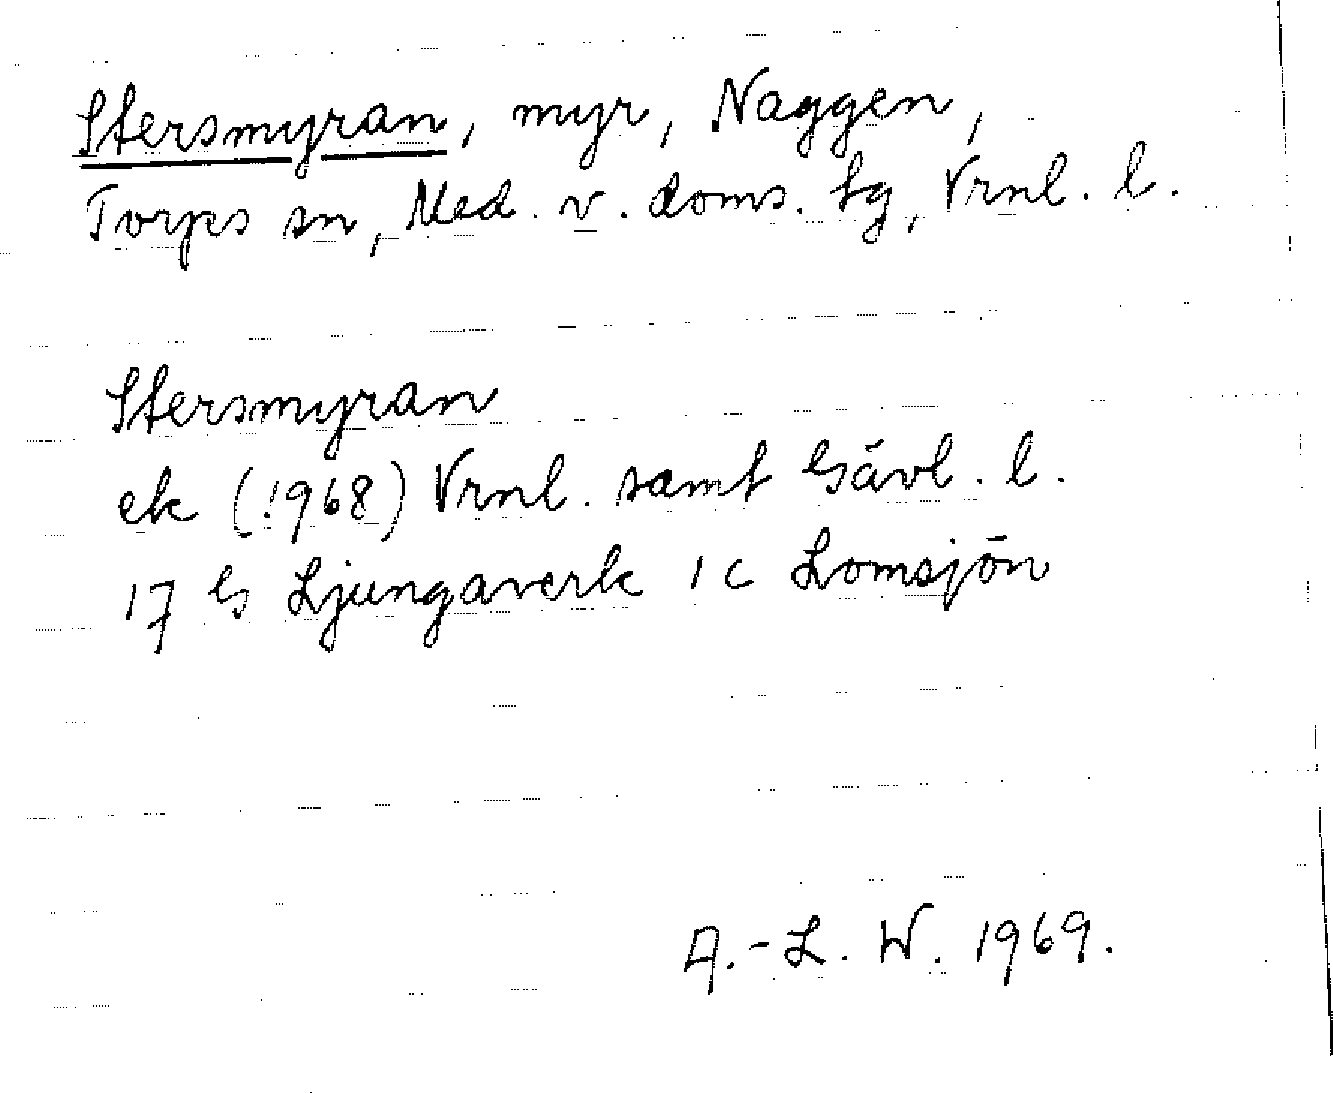 Stersmyran, myr, Naggen,
Torps sn, Med. v. doms. tg, Vrnl. l.
Stersmyran
ek (1968) Vrnl. samt Gävl. l.
17 G Ljungaverk 1 c Lomsjön
A.-L. W. 1969.